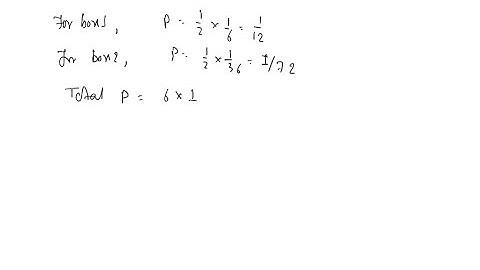 For box1, P = 1/2 × 1/6 = 1/12
For box2, P = 1/2 × 1/36 = 1/72
Total P = 6 × 1